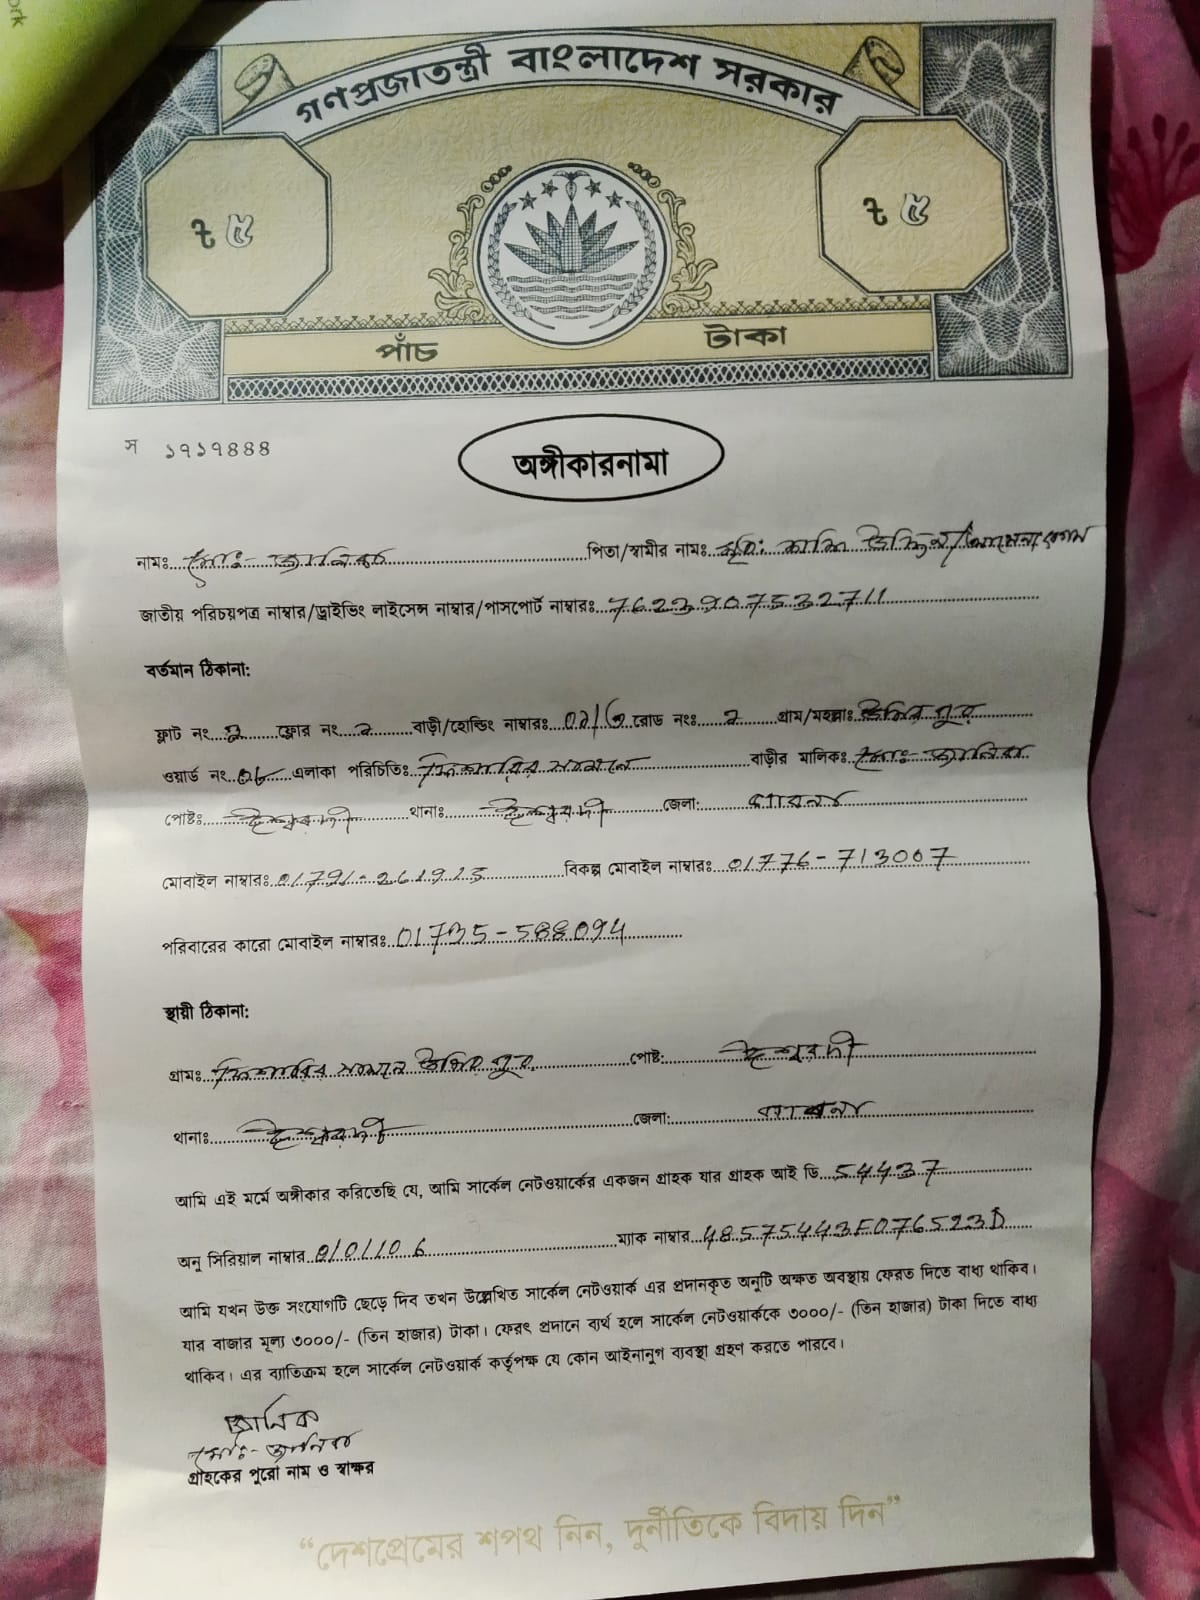 ork
গণপ্রজাতন্ত্রী বাংলাদেশ সরকার
৳ ৫
৳ ৫
পাঁচ টাকা
স ১৭১৭৪৪৪
অঙ্গীকারনামা
নামঃ মোঃ- পিতা/স্বামীর নামঃ
জাতীয় পরিচয়পত্র নাম্বার/ড্রাইভিং লাইসেন্স নাম্বার/পাসপোর্ট নাম্বারঃ
বর্তমান ঠিকানা:
ফ্লাট নং ২ ফ্লোর নং ২ বাড়ী/হোল্ডিং নাম্বারঃ রোড নং ২ গ্রাম/মহল্লাঃ
ওয়ার্ড নং এলাকা পরিচিতিঃ বাড়ীর মালিকঃ মোঃ-
পোষ্টঃ ঈশ্বরদী থানাঃ ঈশ্বরদী জেলা: পাবনা
মোবাইল নাম্বারঃ বিকল্প মোবাইল নাম্বারঃ 01776-713007
পরিবারের কারো মোবাইল নাম্বারঃ 01735-588094
স্থায়ী ঠিকানা:
গ্রামঃ পোষ্ট: ঈশ্বরদী
থানাঃ ঈশ্বরদী জেলা: পাবনা
আমি এই মর্মে অঙ্গীকার করিতেছি যে, আমি সার্কেল নেটওয়ার্কের একজন গ্রাহক যার গ্রাহক আই ডি 54437
অনু সিরিয়াল নাম্বার ম্যাক নাম্বার 48575443F076523D
আমি যখন উক্ত সংযোগটি ছেড়ে দিব তখন উল্লেখিত সার্কেল নেটওয়ার্ক এর প্রদানকৃত অনুটি অক্ষত অবস্থায় ফেরত দিতে বাধ্য থাকিব।
যার বাজার মূল্য ৩০০০/- (তিন হাজার) টাকা। ফেরৎ প্রদানে ব্যর্থ হলে সার্কেল নেটওয়ার্ককে ৩০০০/- (তিন হাজার) টাকা দিতে বাধ্য
থাকিব। এর ব্যাতিক্রম হলে সার্কেল নেটওয়ার্ক কর্তৃপক্ষ যে কোন আইনানুগ ব্যবস্থা গ্রহণ করতে পারবে।
মোঃ-
গ্রাহকের পুরো নাম ও স্বাক্ষর
“দেশপ্রেমের শপথ নিন, দুর্নীতিকে বিদায় দিন”